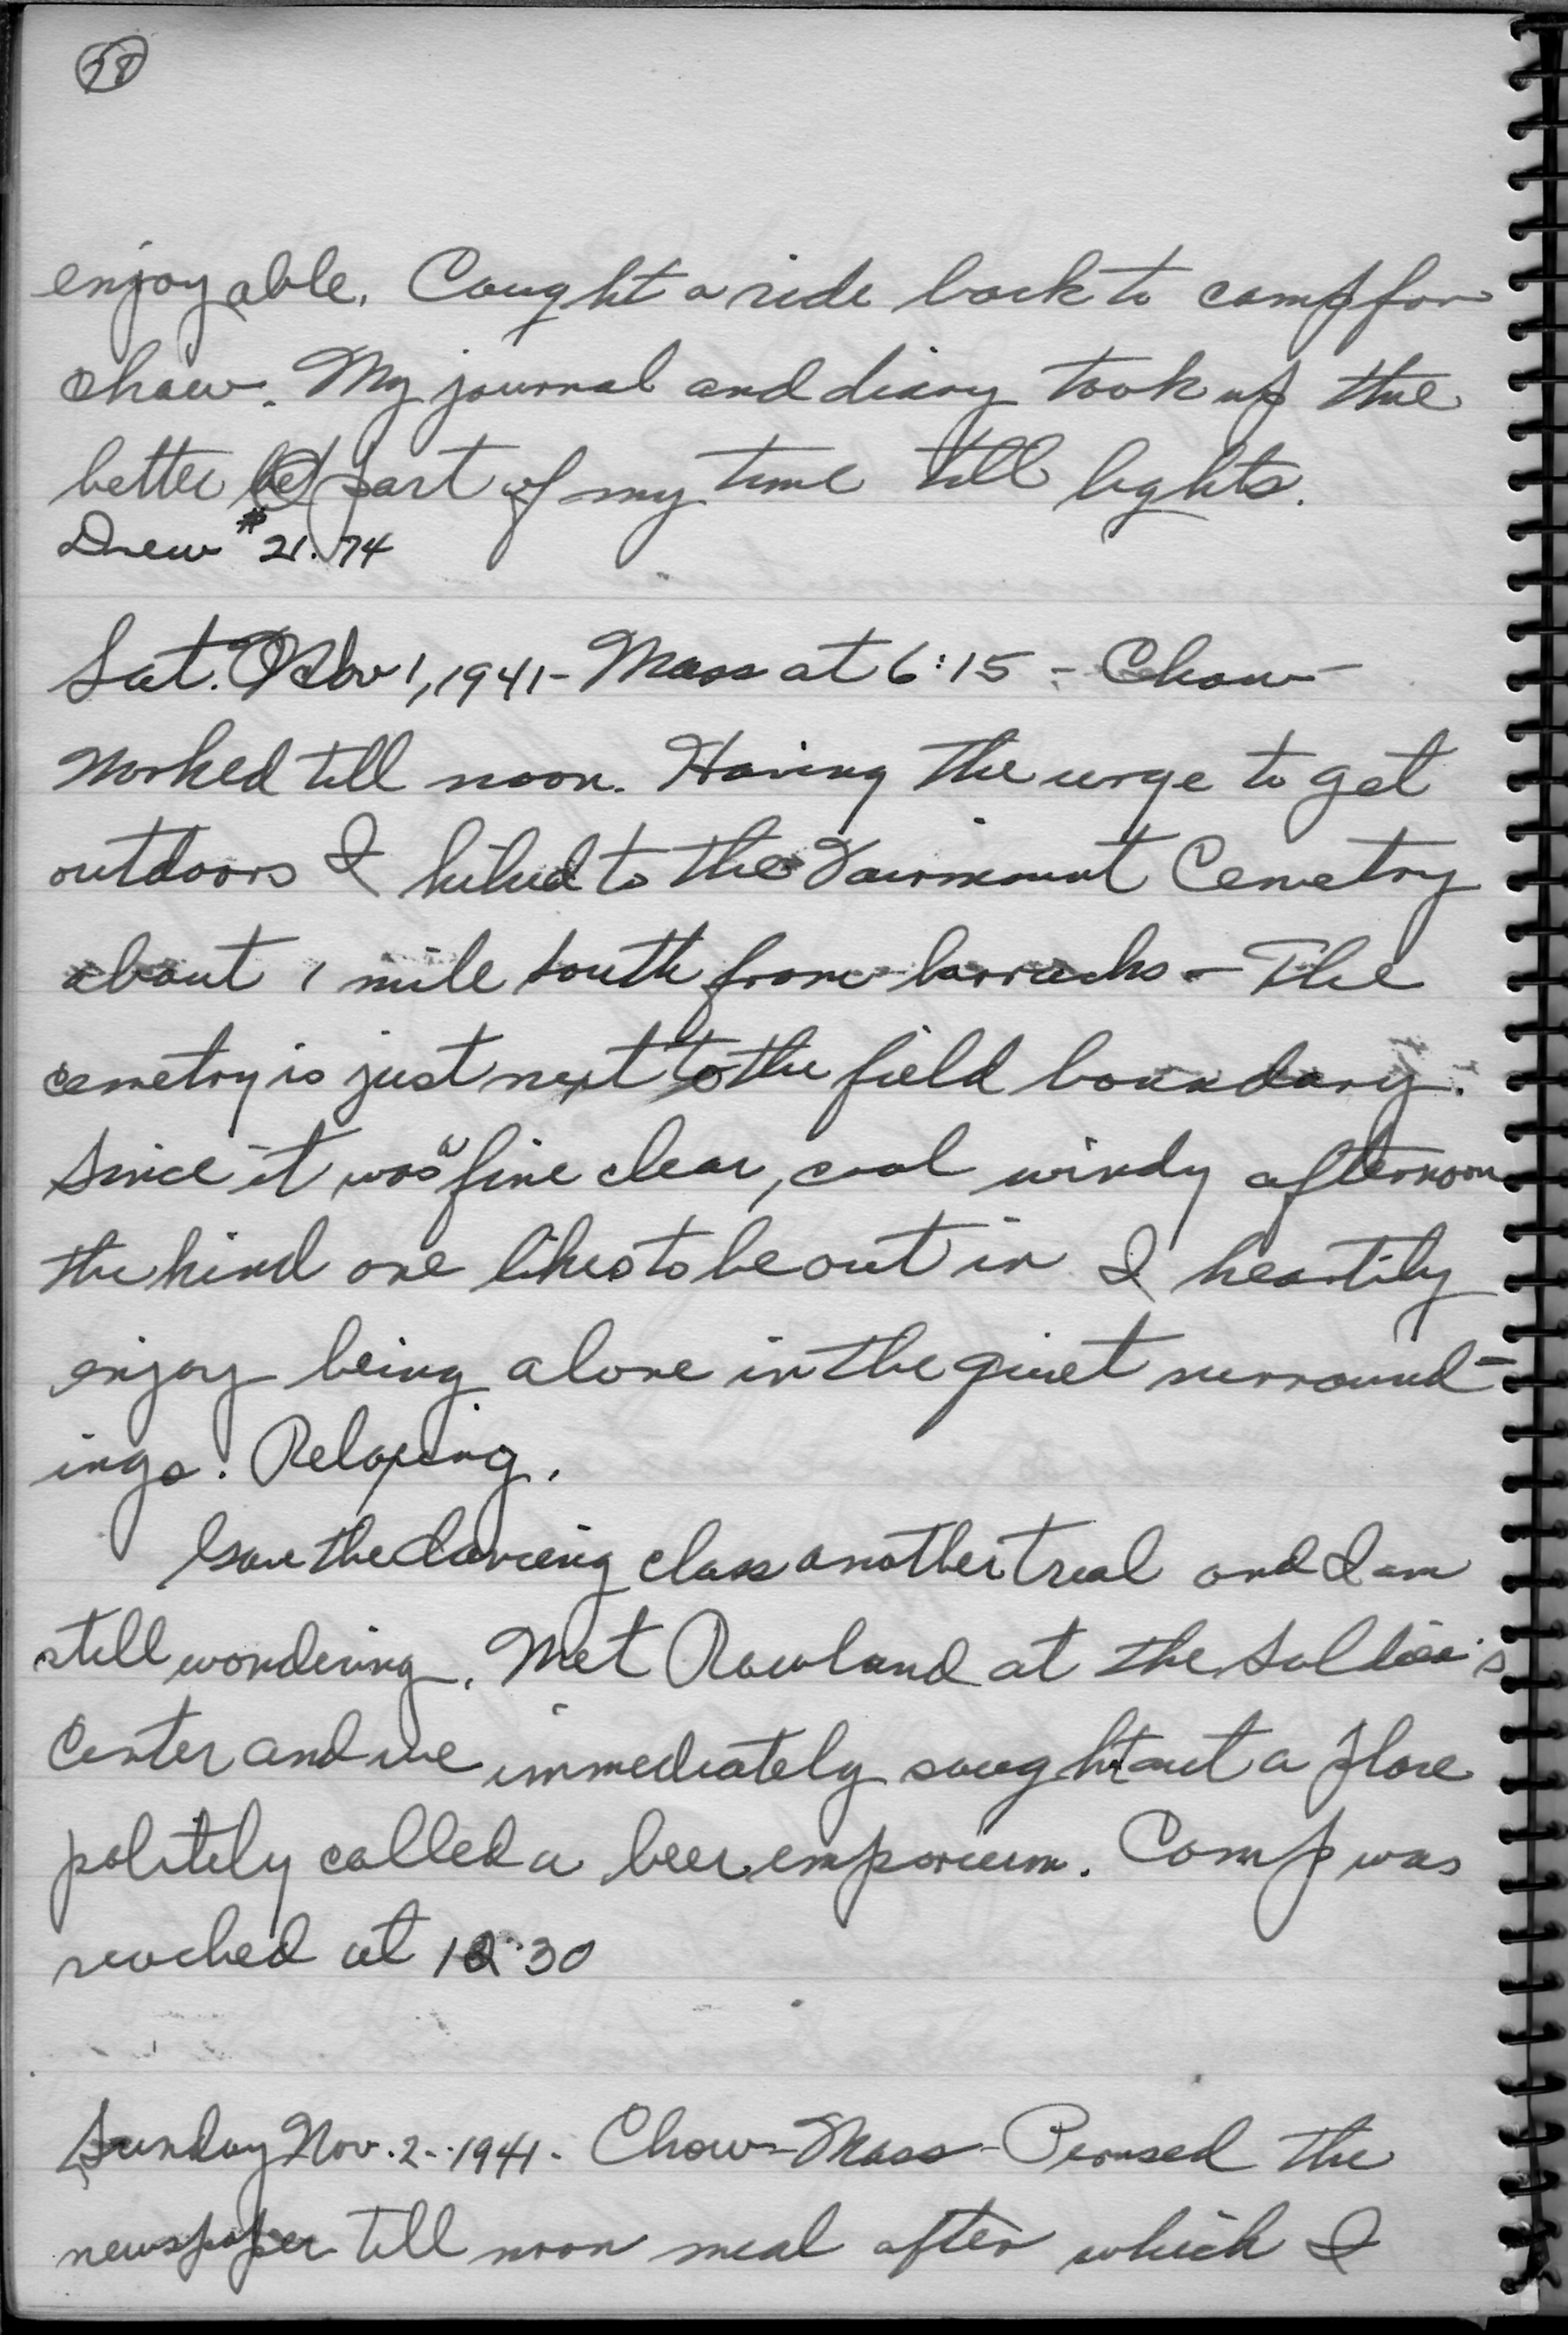 enjoyable. Caught a ride back to camp for
chow. My journal and diary took up the
better part of my time till lights.
Drew $21.74
Sat. Nov 1, 1941 - Mass at 6:15 - Chow -
Worked till noon. Having the urge to get
outdoors I hiked to the Fairmount Cemetry
about 1 mile south from barracks - The
cemetry is just next to the field boundary.
Since it was a fine clear, cool windy afternoon
the kind one likes to be out in I heartily
enjoy being alone in the quiet surround-
ings. Relaxing.
Gave the dancing class another trial and I am
still wondering. Met Rowland at the Soldier's
Center and we immediately sought out a place
politely called a beer emporium. Camp was
reached at 12:30
Sunday Nov. 2 - 1941 - Chow - Mass - Perused the
newspaper till noon meal after which I